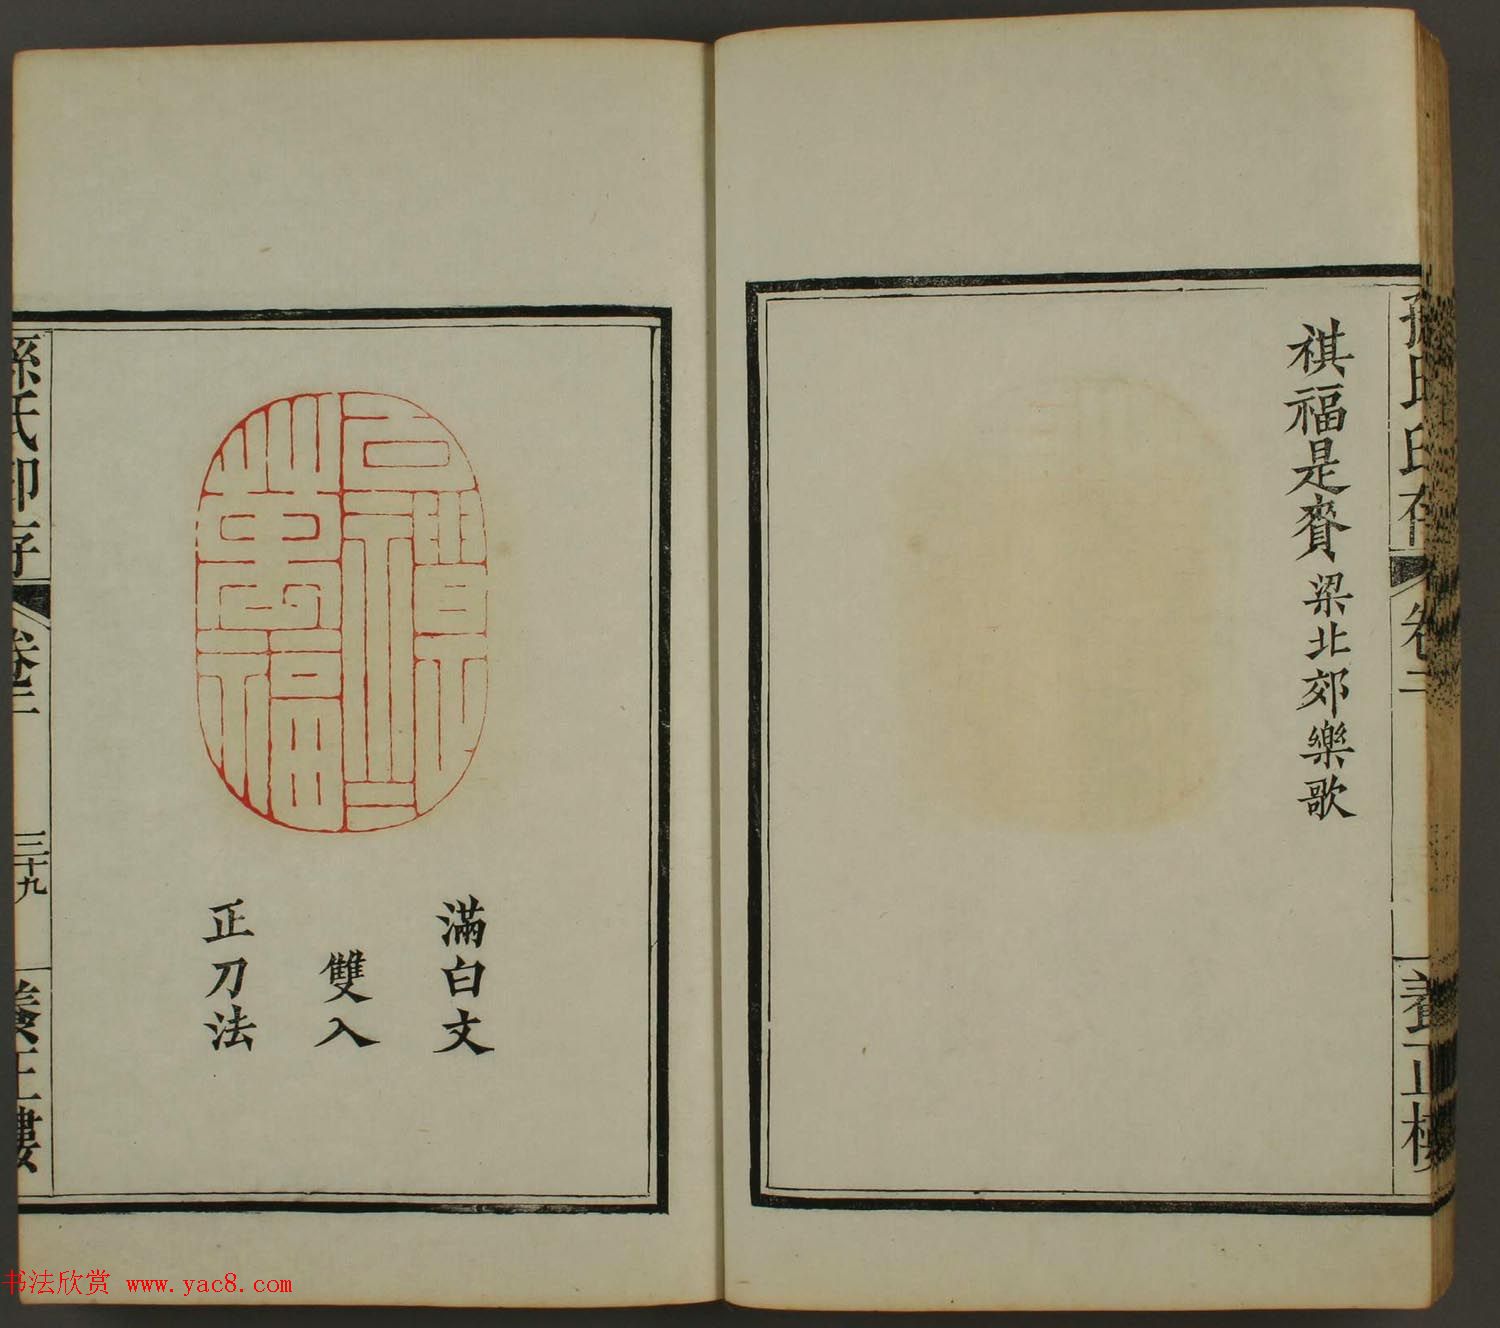 祺福是賚 梁北郊樂歌
孫氏印存
卷二
養正樓
滿白文
雙入
正刀法
孫氏印存
卷二
三十九
養正樓
书法欣赏 www.yac8.com